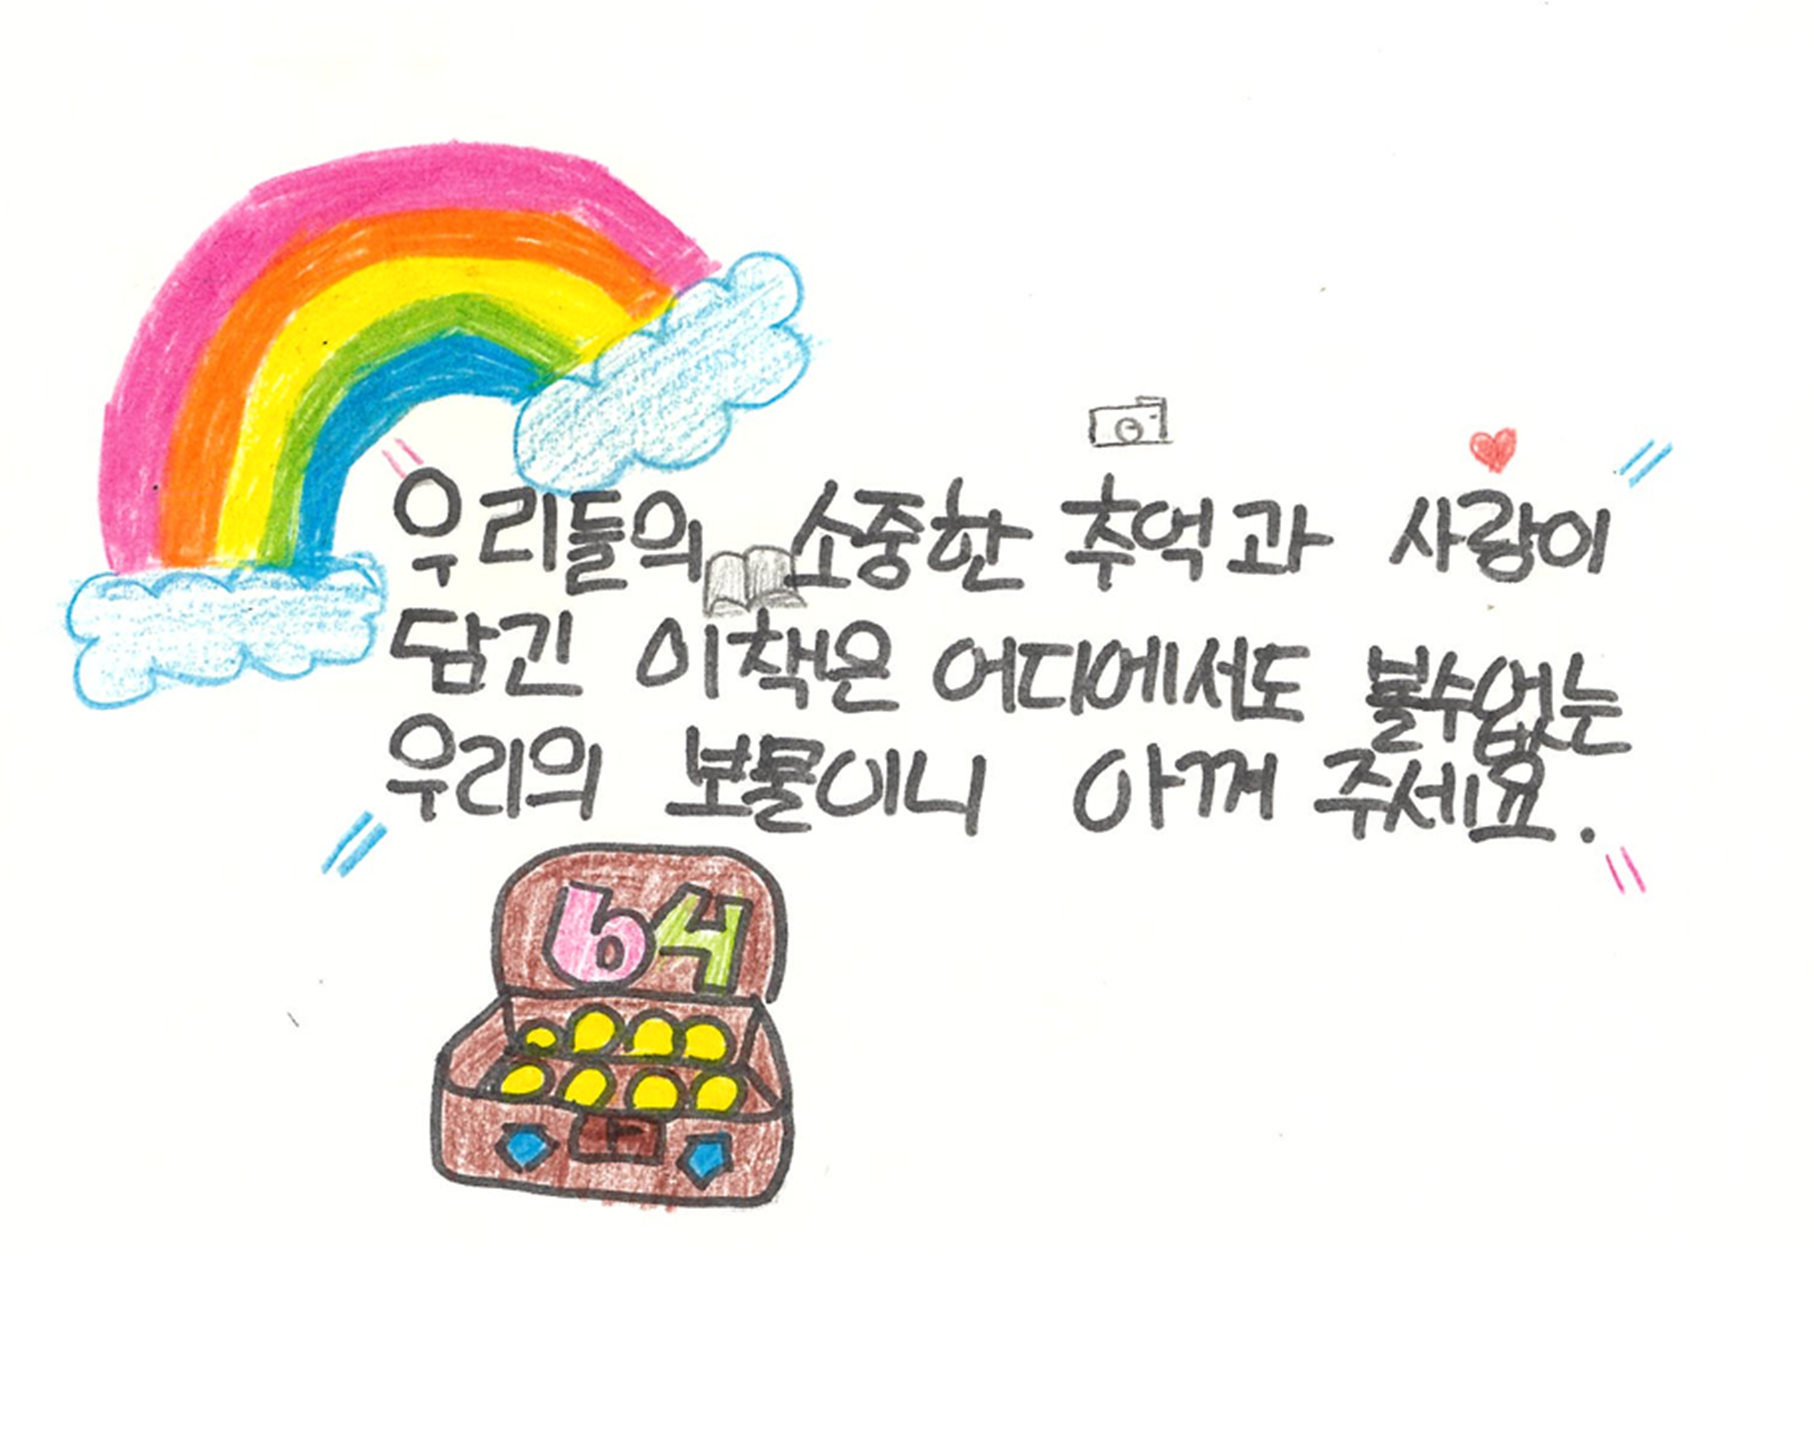 우리들의 소중한 추억과 사랑이
담긴 이책은 어디에서도 볼수없는
우리의 보물이니 아껴 주세요.
64